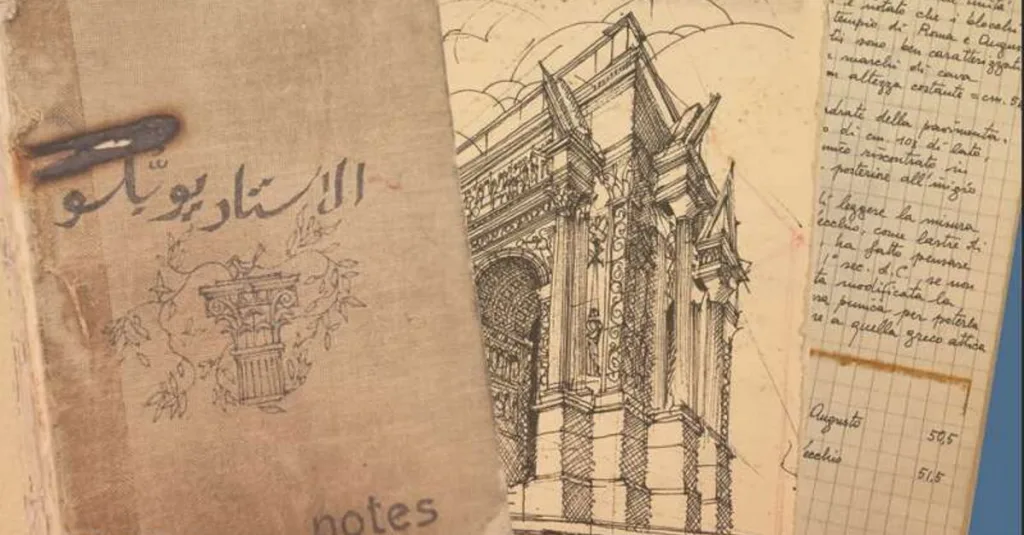 الاستاد
notes
unità
è notato che i blocchi
tempio di Roma e Augus
ti sono ben caratterizzat
marchi di cava
altezza costante = cm. 5
drate della pavimenta.
o di cm. 103 di lato,
mico riscontrato in
posteriore all'inizio
leggere la misura
ecchio, come lastre di
ha fatto pensare
" sec. d.C. se non
ta modificata la
va punica per poterla
re a quella greco attica
Augusto 50,5
ecchio 51,5